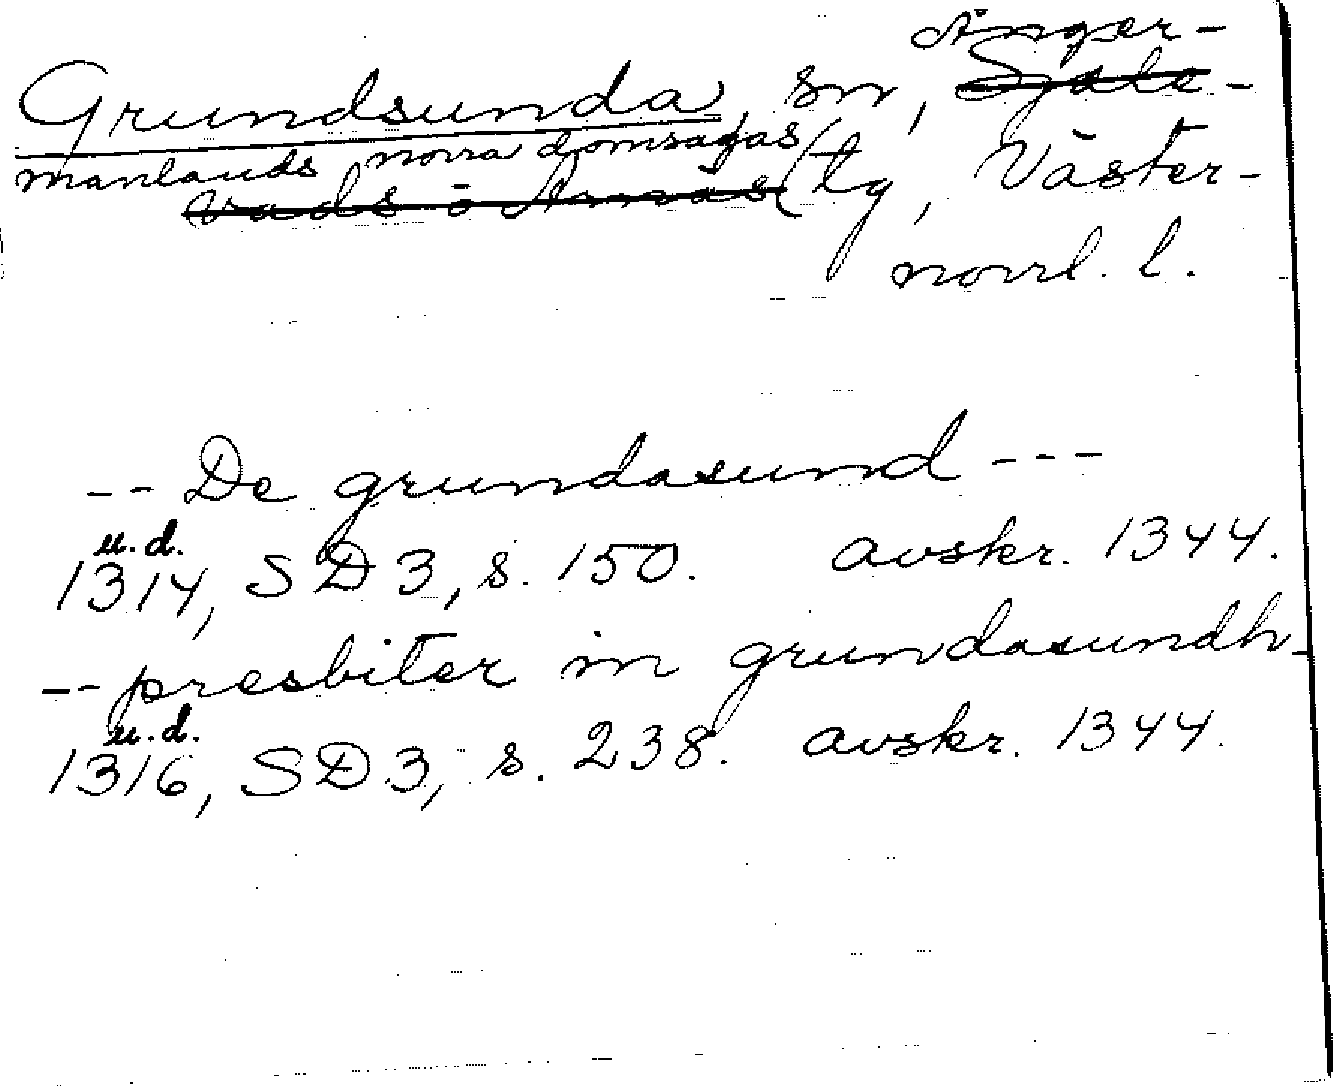 Ånger-
Grundsunda, sn, Själe-
manlands norra domsagas tg, Väster-
vads o Arnäs
norrl. l.
-- De grundasund ---
u.d.
1314, SD 3, s. 150. avskr. 1344.
-- presbiter in grundasundh -
u.d.
1316, SD 3, s. 238. avskr. 1344.